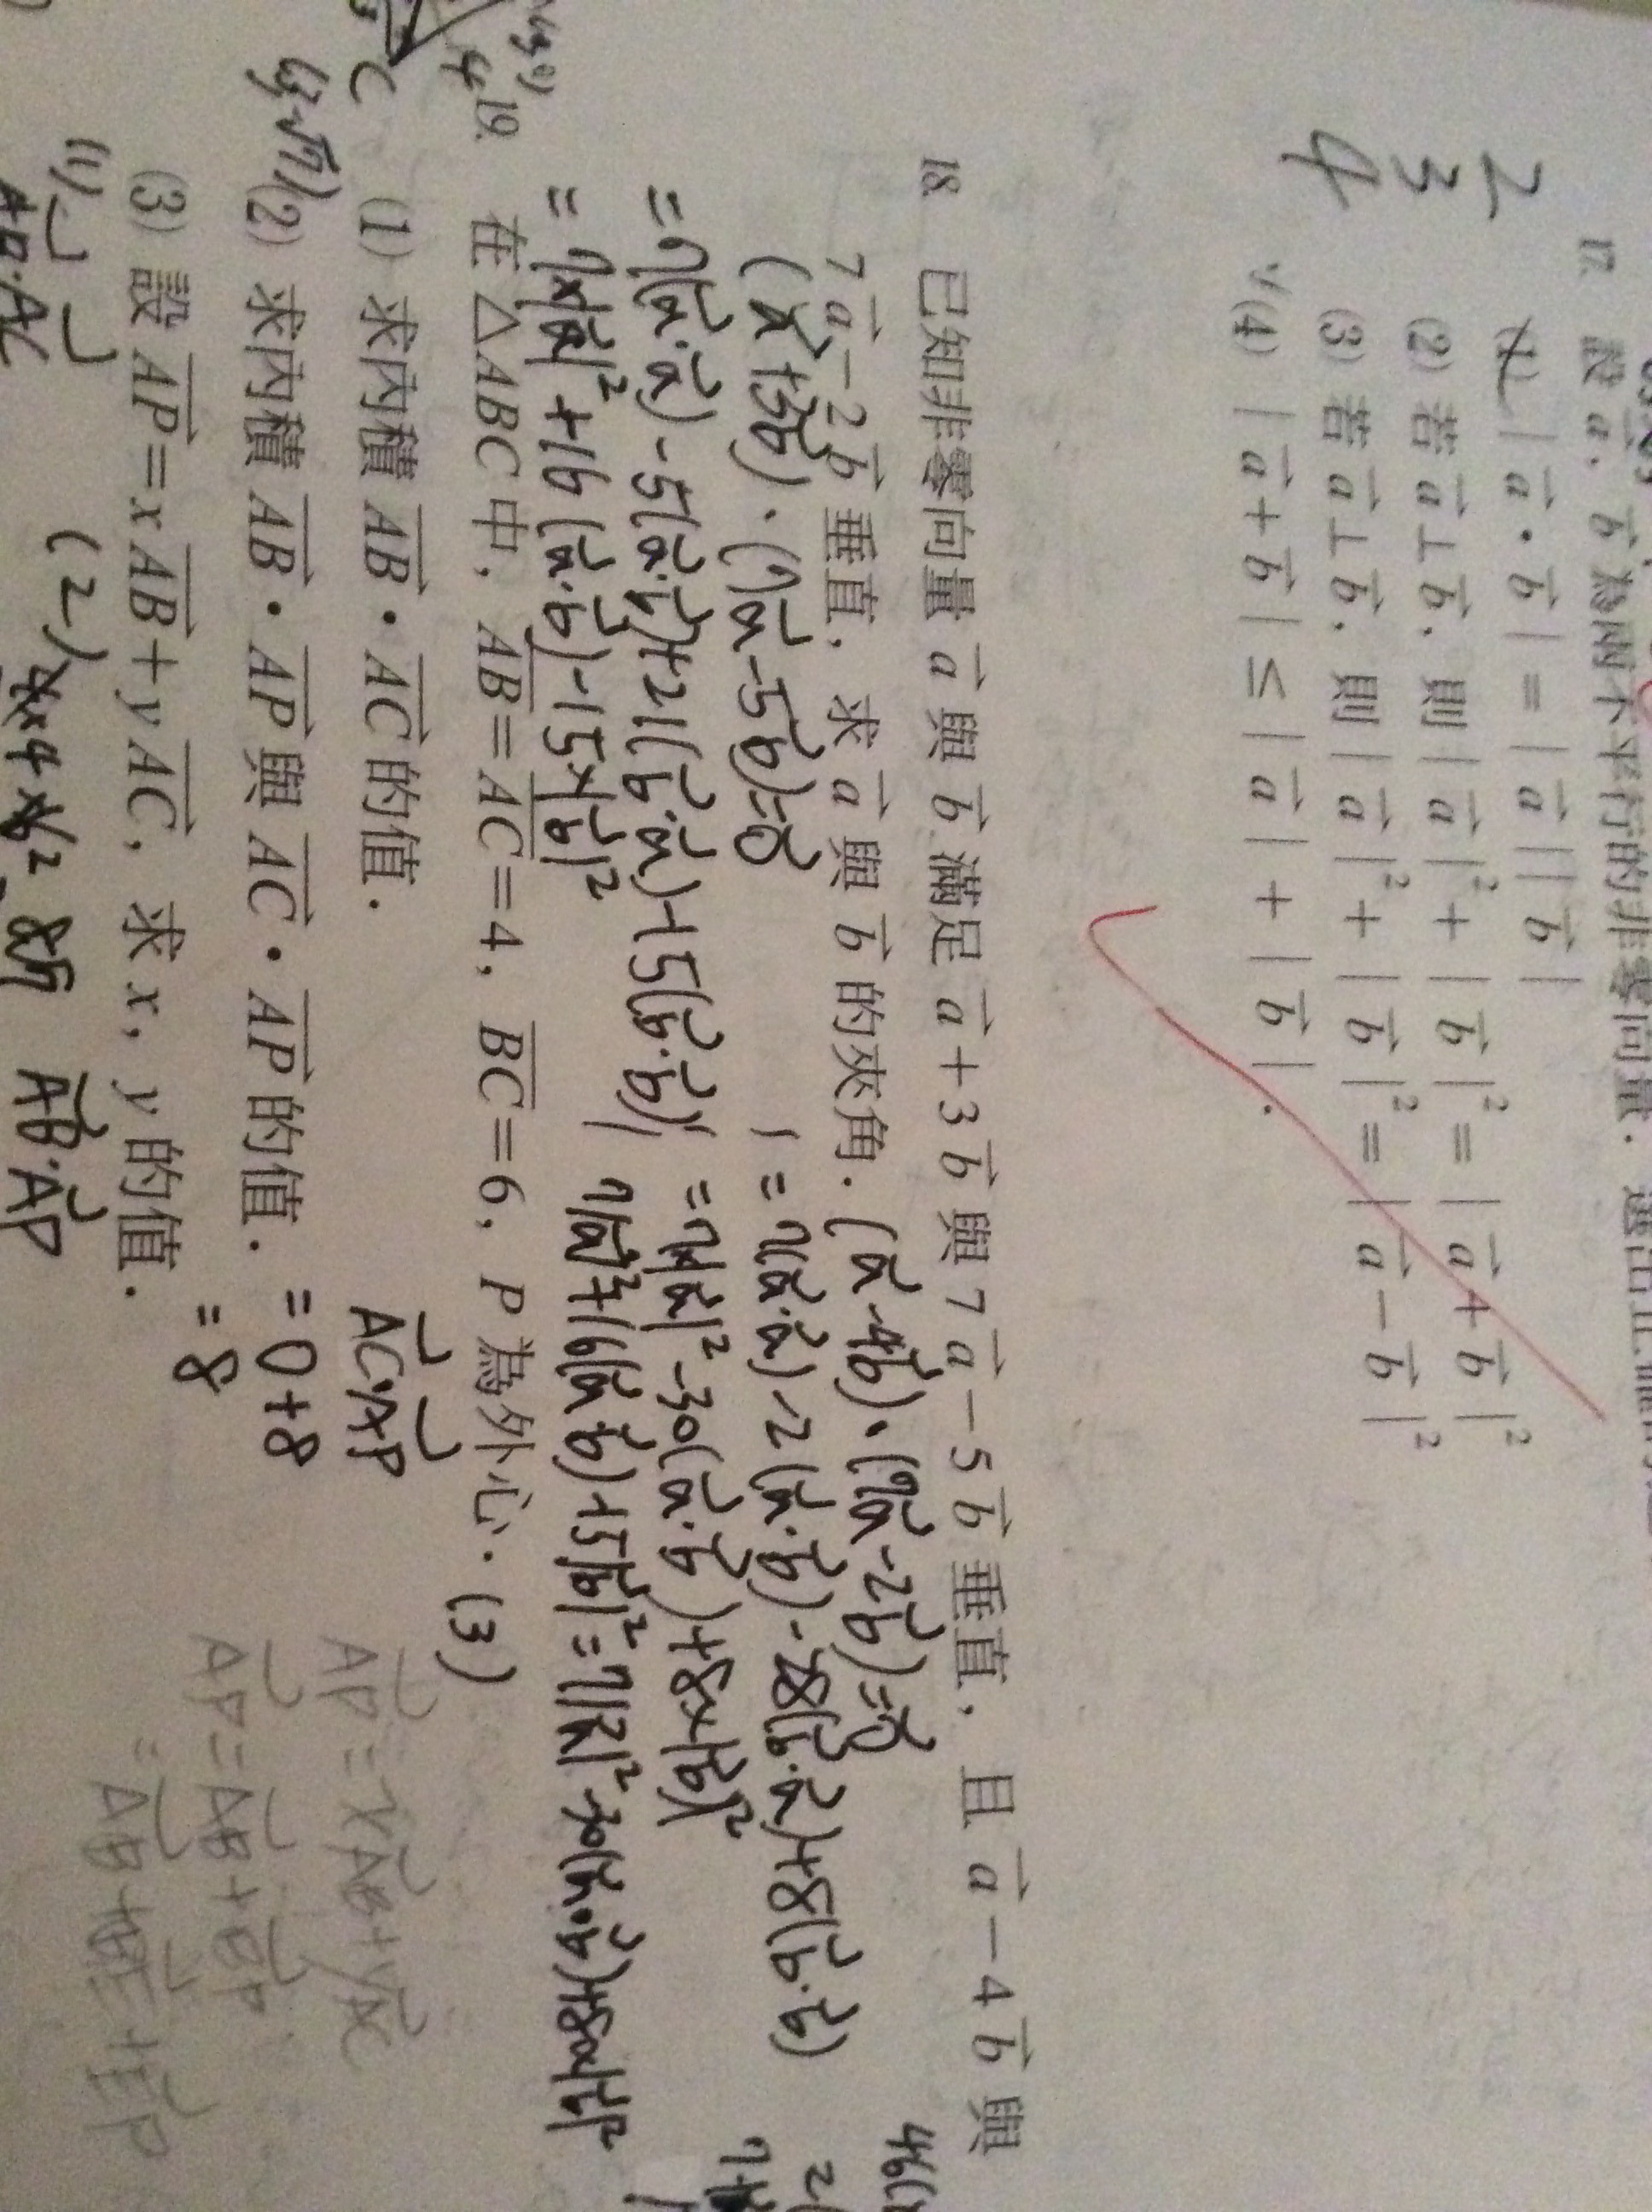 17. 設 a⃗, b⃗ 為兩不平行的非零向量. 選出正確的
(1) |a⃗・b⃗| = |a⃗||b⃗|
(2) 若 a⃗⊥b⃗, 則 |a⃗|² + |b⃗|² = |a⃗+b⃗|²
(3) 若 a⃗⊥b⃗, 則 |a⃗|² + |b⃗|² = |a⃗−b⃗|²
√(4) |a⃗+b⃗| ≤ |a⃗| + |b⃗|.
2
3
4
18. 已知非零向量 a⃗ 與 b⃗ 滿足 a⃗+3b⃗ 與 7a⃗−5b⃗ 垂直, 且 a⃗−4b⃗ 與
7a⃗−2b⃗ 垂直, 求 a⃗ 與 b⃗ 的夾角.
(a⃗+3b⃗)・(7a⃗−5b⃗)=0
=7(a⃗・a⃗)−5(a⃗・b⃗)+21(b⃗・a⃗)−15(b⃗・b⃗)
=7×|a⃗|²+16(a⃗・b⃗)−15×|b⃗|²
(a⃗−4b⃗)・(7a⃗−2b⃗)=0
=7(a⃗・a⃗)−2(a⃗・b⃗)−28(b⃗・a⃗)+8(b⃗・b⃗)
=7×|a⃗|²−30(a⃗・b⃗)+8×|b⃗|²
7|a⃗|²+16(a⃗・b⃗)+15|b⃗|²=7|a⃗|²−30(a⃗・b⃗)+8×|b⃗|²
19. 在 △ABC 中, AB=AC=4, BC=6, P 為外心. (3)
(1) 求內積 AB⃗・AC⃗ 的值.
(2) 求內積 AB⃗・AP⃗ 與 AC⃗・AP⃗ 的值.
(3) 設 AP⃗=xAB⃗+yAC⃗, 求 x, y 的值.
AC⃗・AP⃗
=0+8
=8
AP⃗=xAB⃗+yAC⃗
AP⃗=AB⃗+BP⃗
=AB⃗+BE⃗+EP⃗
(1)
AB⃗・AC⃗
(2)
AB⃗・AP⃗
C
4